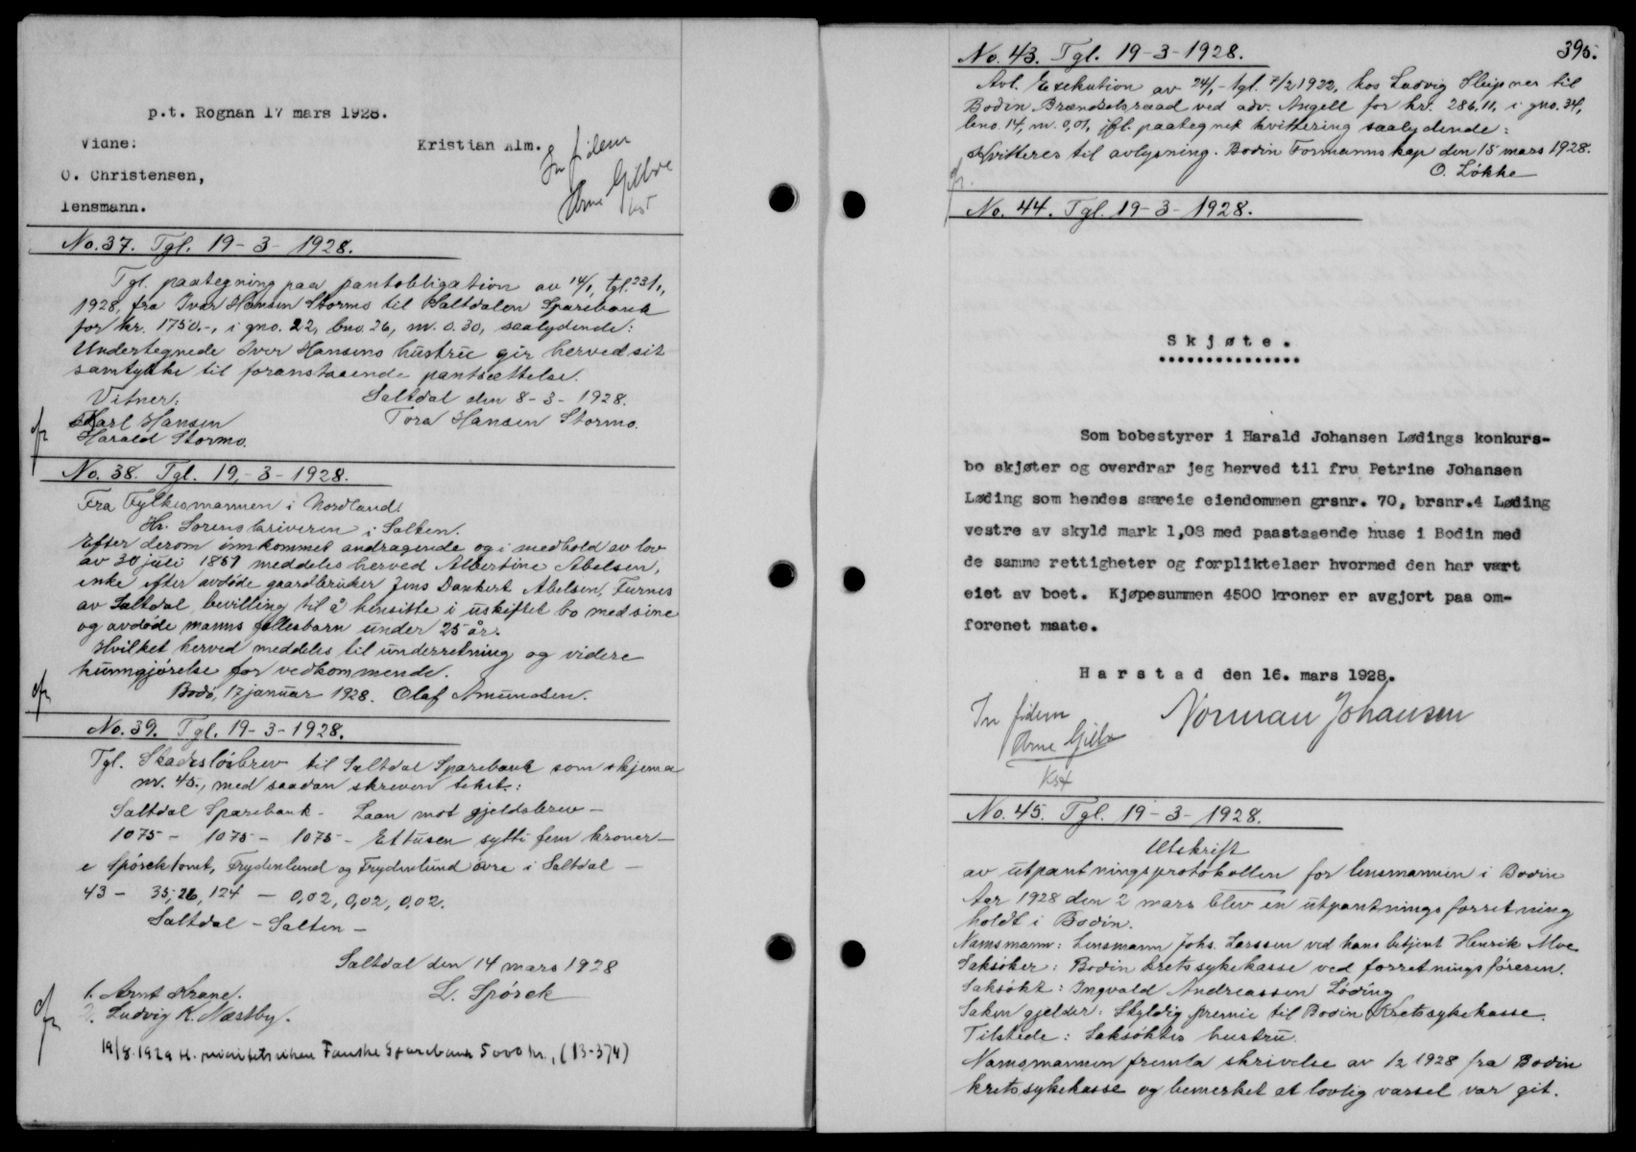 p.t. Rognan 17 mars 1928.
Vidne:
Kristian Alm.
O. Christensen,
lensmann.
In fidem
Arne Gilboe
kst
No. 37. Tgl. 19-3-1928.
Tgl. paategning paa pantobligation av 14/1, tgl. 23/1,
1928, fra Ivar Hansen Stormo til Saltdalen Sparebank
for kr. 1750.-, i gno. 22, bno. 26, m. 0.30, saalydende:
Undertegnede Iver Hansens hustru gir herved sit
samtykke til foranstaaende pantsættelse.
Vitner: Saltdal den 8-3-1928.
Karl Hansen Tora Hansen Stormo.
Harald Stormo.
No. 38. Tgl. 19-3-1928.
Fra Fylkesmannen i Nordland:
Hr. Sorenskriveren i Salten.
Efter derom innkommet andragende og i medhold av lov
av 30 juli 1851 meddeles herved Albertine Abelsen,
enke efter avdøde gaardbruker Jens Dankert Abelsen, Furnes
av Saltdal, bevilling til å hensitte i uskiftet bo med sine
og avdøde manns fellesbarn under 25 år.
Hvilket herved meddeles til underretning og videre
kunngjørelse for vedkommende.
Bodø, 17 januar 1928. Olaf Amundsen.
No. 39. Tgl. 19-3-1928.
Tgl. Skadesløsbrev til Saltdal Sparebank som skjema
nr. 45., med saadan skreven tekst:
Saltdal Sparebank - Laan mot gjeldsbrev -
1075 - 1075 - 1075 - Ettusen sytti fem kroner -
e Spørcktomt, Frydenlund og Frydenlund øvre i Saltdal -
43 - 35, 26, 124 - 0,02, 0,02, 0,02.
Saltdal - Salten -
Saltdal den 14 mars 1928
1. Arnt Krane. L. Spörck
2. Ludvig K. Næstby.
19/8.1929 Fauske Sparebank 5000 kr., (13-374)
395.
No. 43. Tgl. 19-3-1928.
Avl. Exekution av 24/1, - tgl. 7/2 1922, hos Ludvig Sleipnes til
Bodin Brændselsraad ved adv. Angell for kr. 286,11, i gno. 34,
bno. 14, m. 0,01, jfl. paategnet kvittering saalydende:
Kvitteres til avlysning. Bodin Formannskap den 15 mars 1928.
O. Løkke
No. 44. Tgl. 19-3-1928.
Skjøte.
Som bobestyrer i Harald Johansen Lødings konkurs-
bo skjøter og overdrar jeg herved til fru Petrine Johansen
Løding som hendes særeie eiendommen grsnr. 70, brsnr.4 Løding
vestre av skyld mark 1,08 med paastaaende huse i Bodin med
de samme rettigheter og forpliktelser hvormed den har vært
eiet av boet. Kjøpesummen 4500 kroner er avgjort paa om-
forenet maate.
Harstad den 16. mars 1928.
Norman Johansen
In fidem
Arne Gilboe
Kst
No. 45. Tgl. 19-3-1928.
Utskrift
av utpantningsprotokollen for lensmannen i Bodin
Aar 1928 den 2 mars blev en utpantningsforretning
holdt i Bodin.
Namsmann: Lensmann Johs. Larssen ved hans betjent Henrik Moe
Saksøker: Bodin kretssykekasse ved forretningsføreren.
Saksøkt: Ingvald Andreassen Løding
Saken gjelder: Skyldig premie til Bodin Kretssykekasse.
Tilstede: Saksøktes hustru.
Namsmannen fremla skrivelse av 1/2 1928 fra Bodin
kretssykekasse og bemerket at lovlig varsel var git.